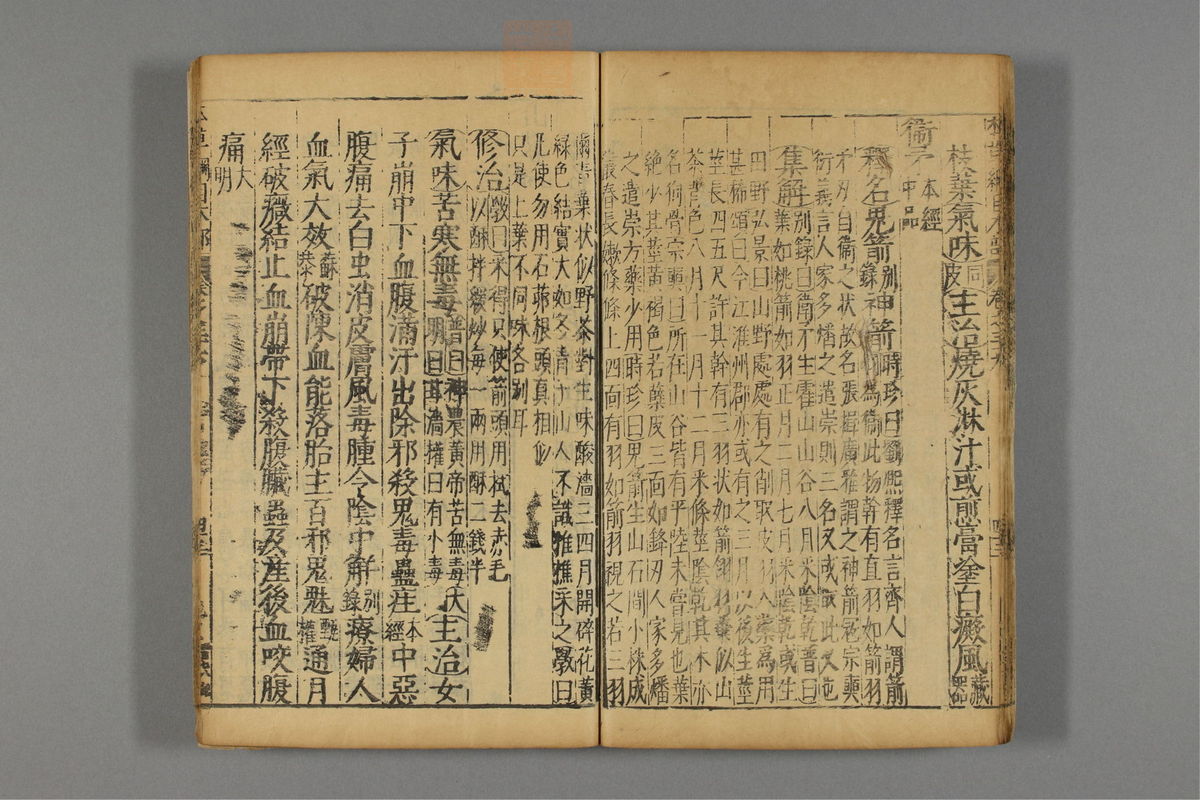 枝葉氣味同皮主治燒灰淋汁或煎膏塗白癜風藏器
衛矛本經中品
釋名鬼箭別錄神箭時珍曰劉熙釋名言齊人謂箭
羽為衛此物幹有直羽如箭羽
矛刃自衛之狀故名張揖廣雅謂之神箭宼宗奭
衍義言人家多燔之遣祟則三名又或取此又也
集解別錄曰衛矛生霍山山谷八月采陰乾普曰
葉如桃箭如羽正月二月七月采陰乾或生
田野弘景曰山野處處有之削取皮羽入藥為用
甚稀頌曰今江淮州郡亦或有之三月以後生莖
莖長四五尺許其幹有三羽狀如箭翎羽葉似山
茶青色八月十一月十二月采條莖陰乾其木亦
名狗骨宗奭曰所在山谷皆有平陸未嘗見也葉
絶少其莖黄褐色若蘗皮三面如鋒刃人家多燔
之遣祟方藥少用時珍曰鬼箭生山石間小株成
叢春長嫩條條上四面有羽如箭羽視之若三羽
爾青葉狀似野茶對生味酸濇三四月開碎花黄
緑色結實大如冬青子山人不識惟樵采之斆曰
凡使勿用石茆根頭真相似
只是上葉不同味各別耳
修治斆曰采得只使箭頭用拭去赤毛
以酥拌緩炒每一兩用酥一錢半
氣味苦寒無毒普曰神農黄帝苦無毒大
明曰甘濇權曰有小毒主治女
子崩中下血腹滿汗出除邪殺鬼毒蠱疰本經中惡
腹痛去白虫消皮膚風毒腫令陰中解別錄療婦人
血氣大效蘇恭破陳血能落胎主百邪鬼魅甄權通月
經破癥結止血崩帶下殺腹臟蟲及産後血咬腹
痛大明